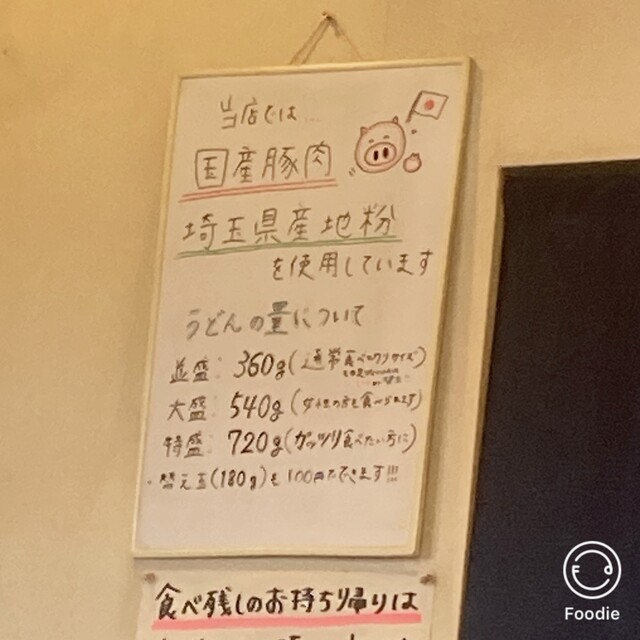 当店では...
国産豚肉
埼玉県産地粉
を使用しています
うどんの量について
並盛: 360g(通常食べ切りサイズ)
大盛: 540g(女性の方も食べられます)
特盛: 720g(ガッツリ食べたい方に)
・替え玉(180g)も100円でできます!!!
食べ残しのお持ち帰りは
Foodie